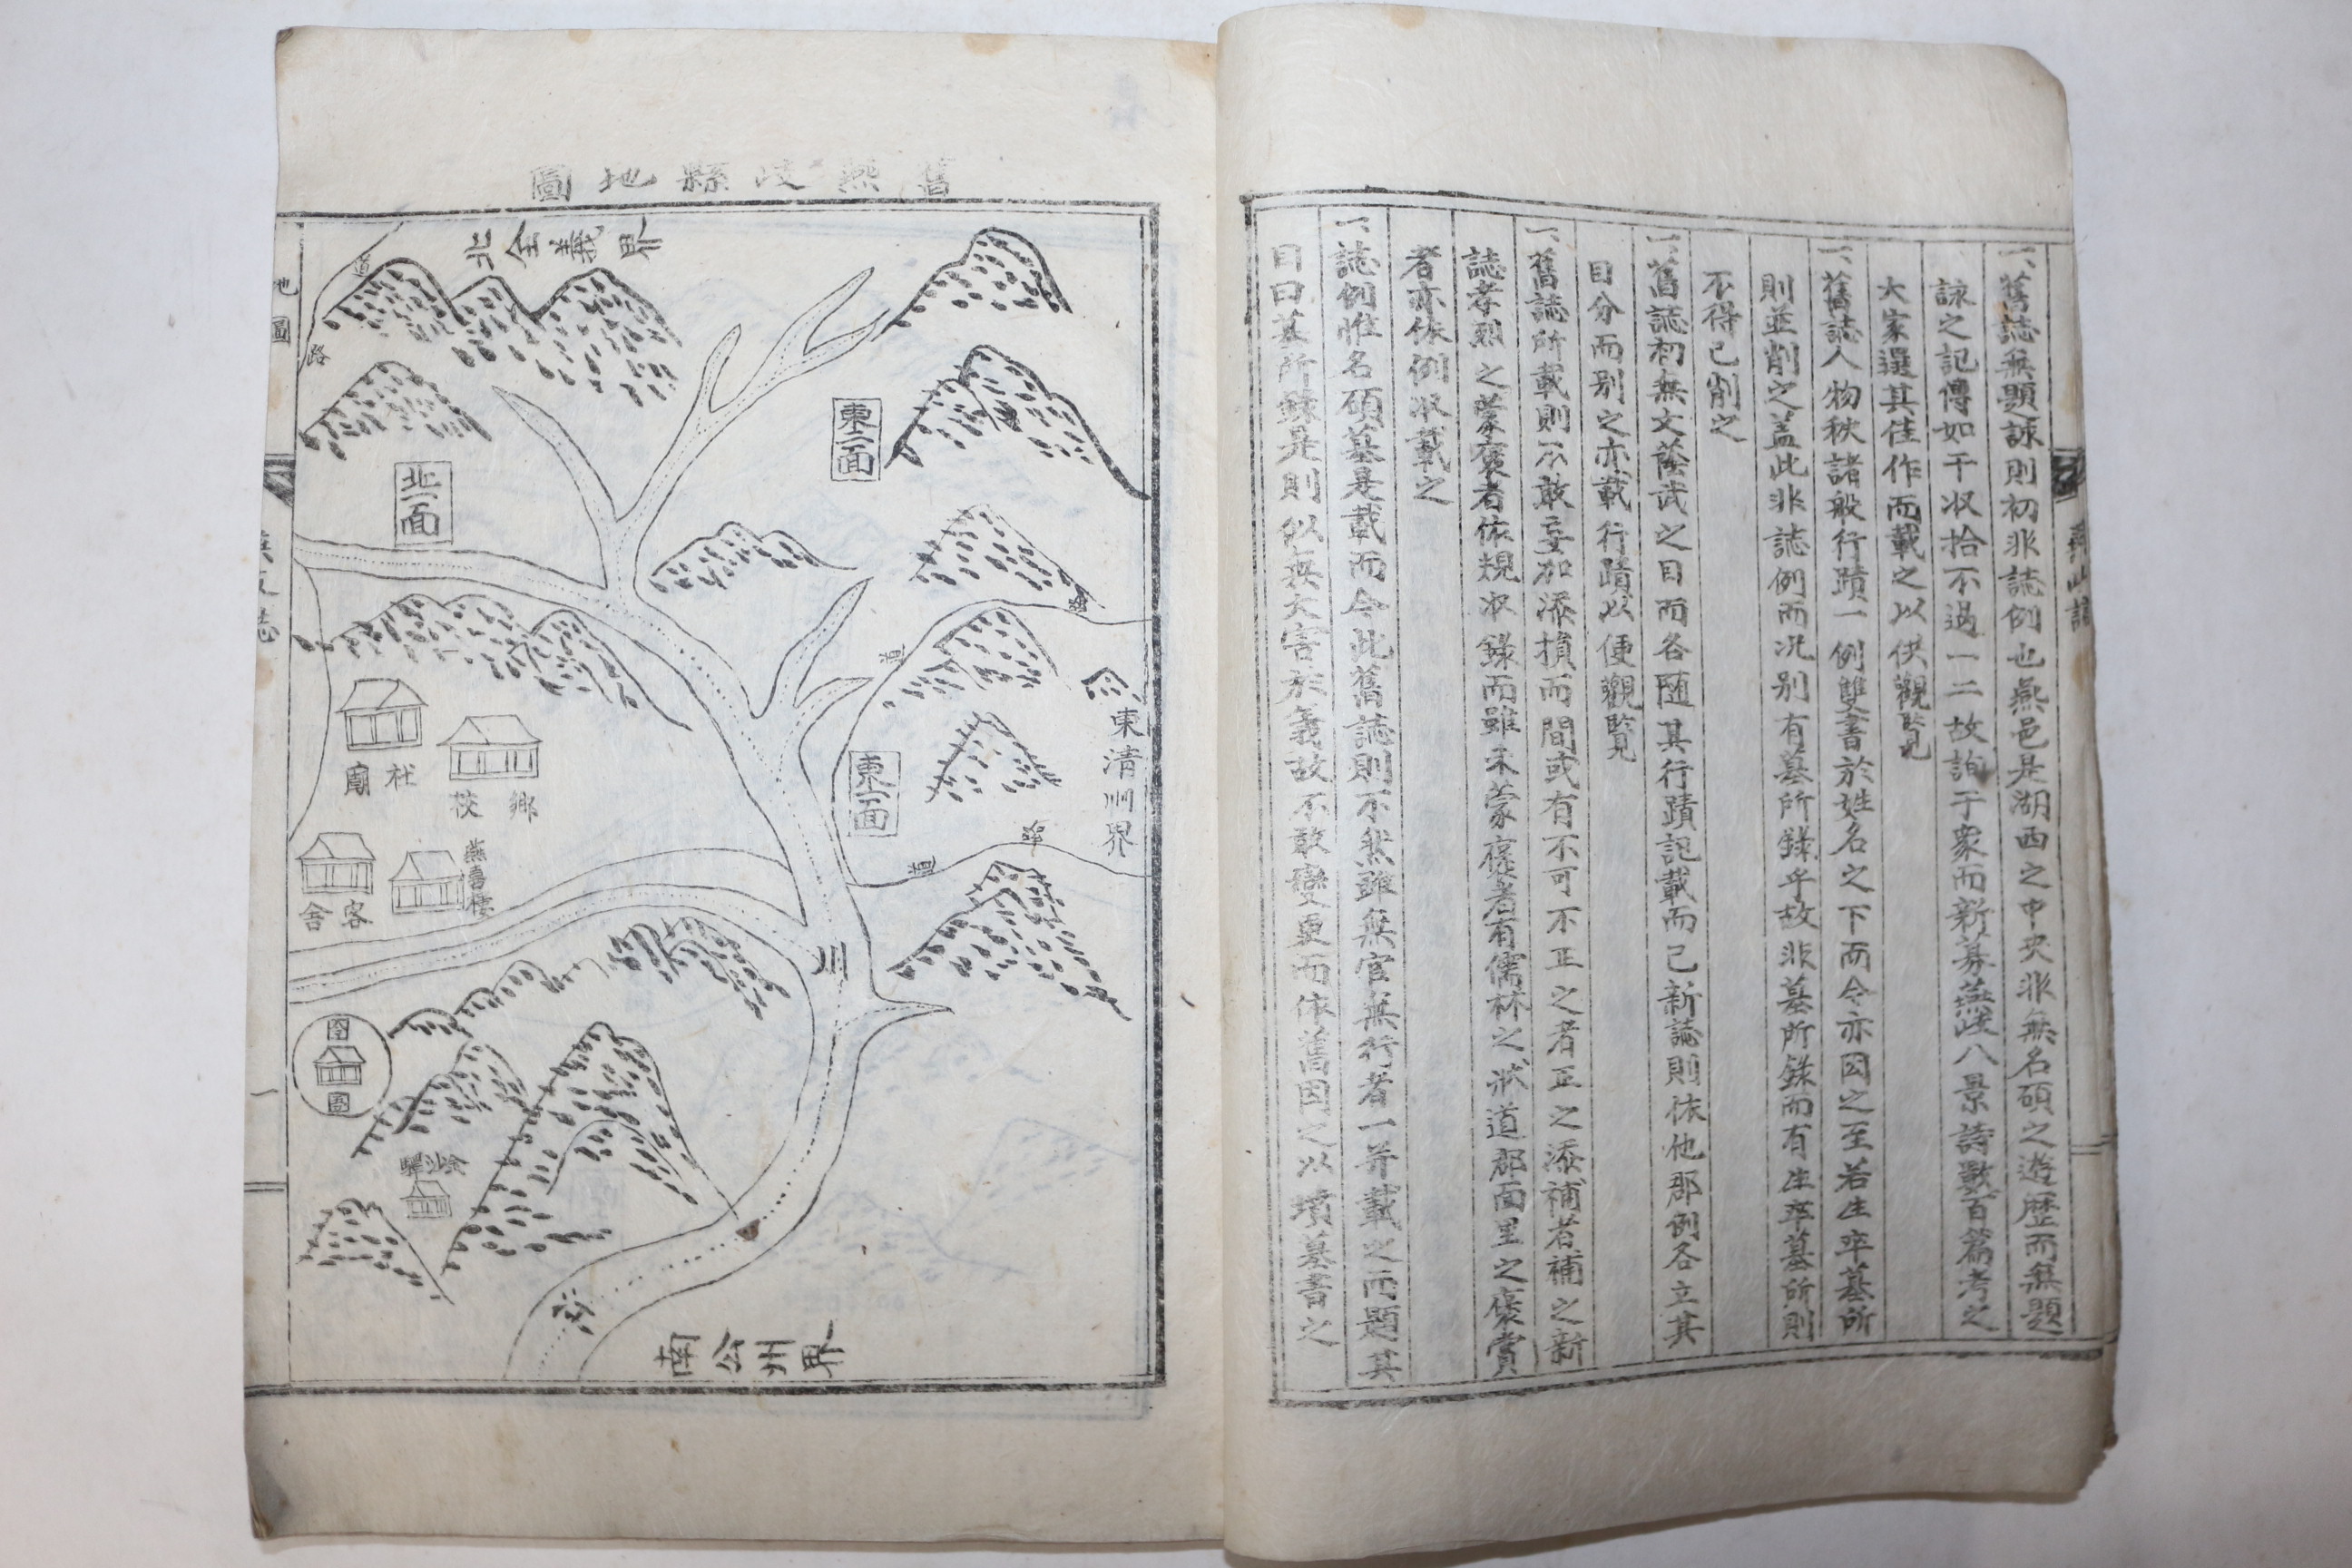 一、舊誌無題詠則初非誌例也燕邑是湖西之中央非無名碩之遊歷而無題
詠之記傳如干收拾不過一二故詢于衆而新募燕岐八景詩數百篇考之
大家選其佳作而載之以供觀覧
一、舊誌人物秩諸般行蹟一例雙書於姓名之下而今亦因之至若生卒墓所
則並削之盖此非誌例而况别有墓所錄乎故非墓所錄而有生卒墓所則
不得已削之
一、舊誌初無文蔭武之目而各随其行蹟記載而已新誌則依他郡例各立其
目分而别之亦載行蹟以便觀覧
一、舊誌所載則不敢妄加添損而間或有不可不正之者正之添補者補之新
誌孝烈之蒙褒者依規收錄而雖未蒙褒者有儒林之狀道郡面里之褒賞
者亦依例收載之
一、誌例惟名碩墓是載而今此舊誌則不然雖無官無行者一并載之而題其
目曰墓所錄是則似無大害於義故不敢變更而依舊因之以墳墓書之
燕岐誌
舊燕岐縣地圖
北全義界
道
路
東二面
北二面
道
東清州界
東一面
社廟
鄉校
道
燕喜樓
客舍
川
囹圄
金沙驛
南公州界
地圖
燕岐誌
一